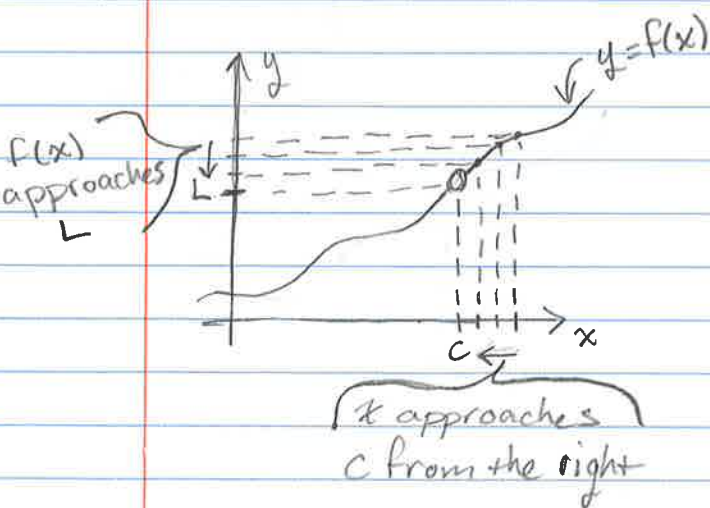 y
y=f(x)
f(x)
approaches
L
L
x
c
x approaches
c from the right